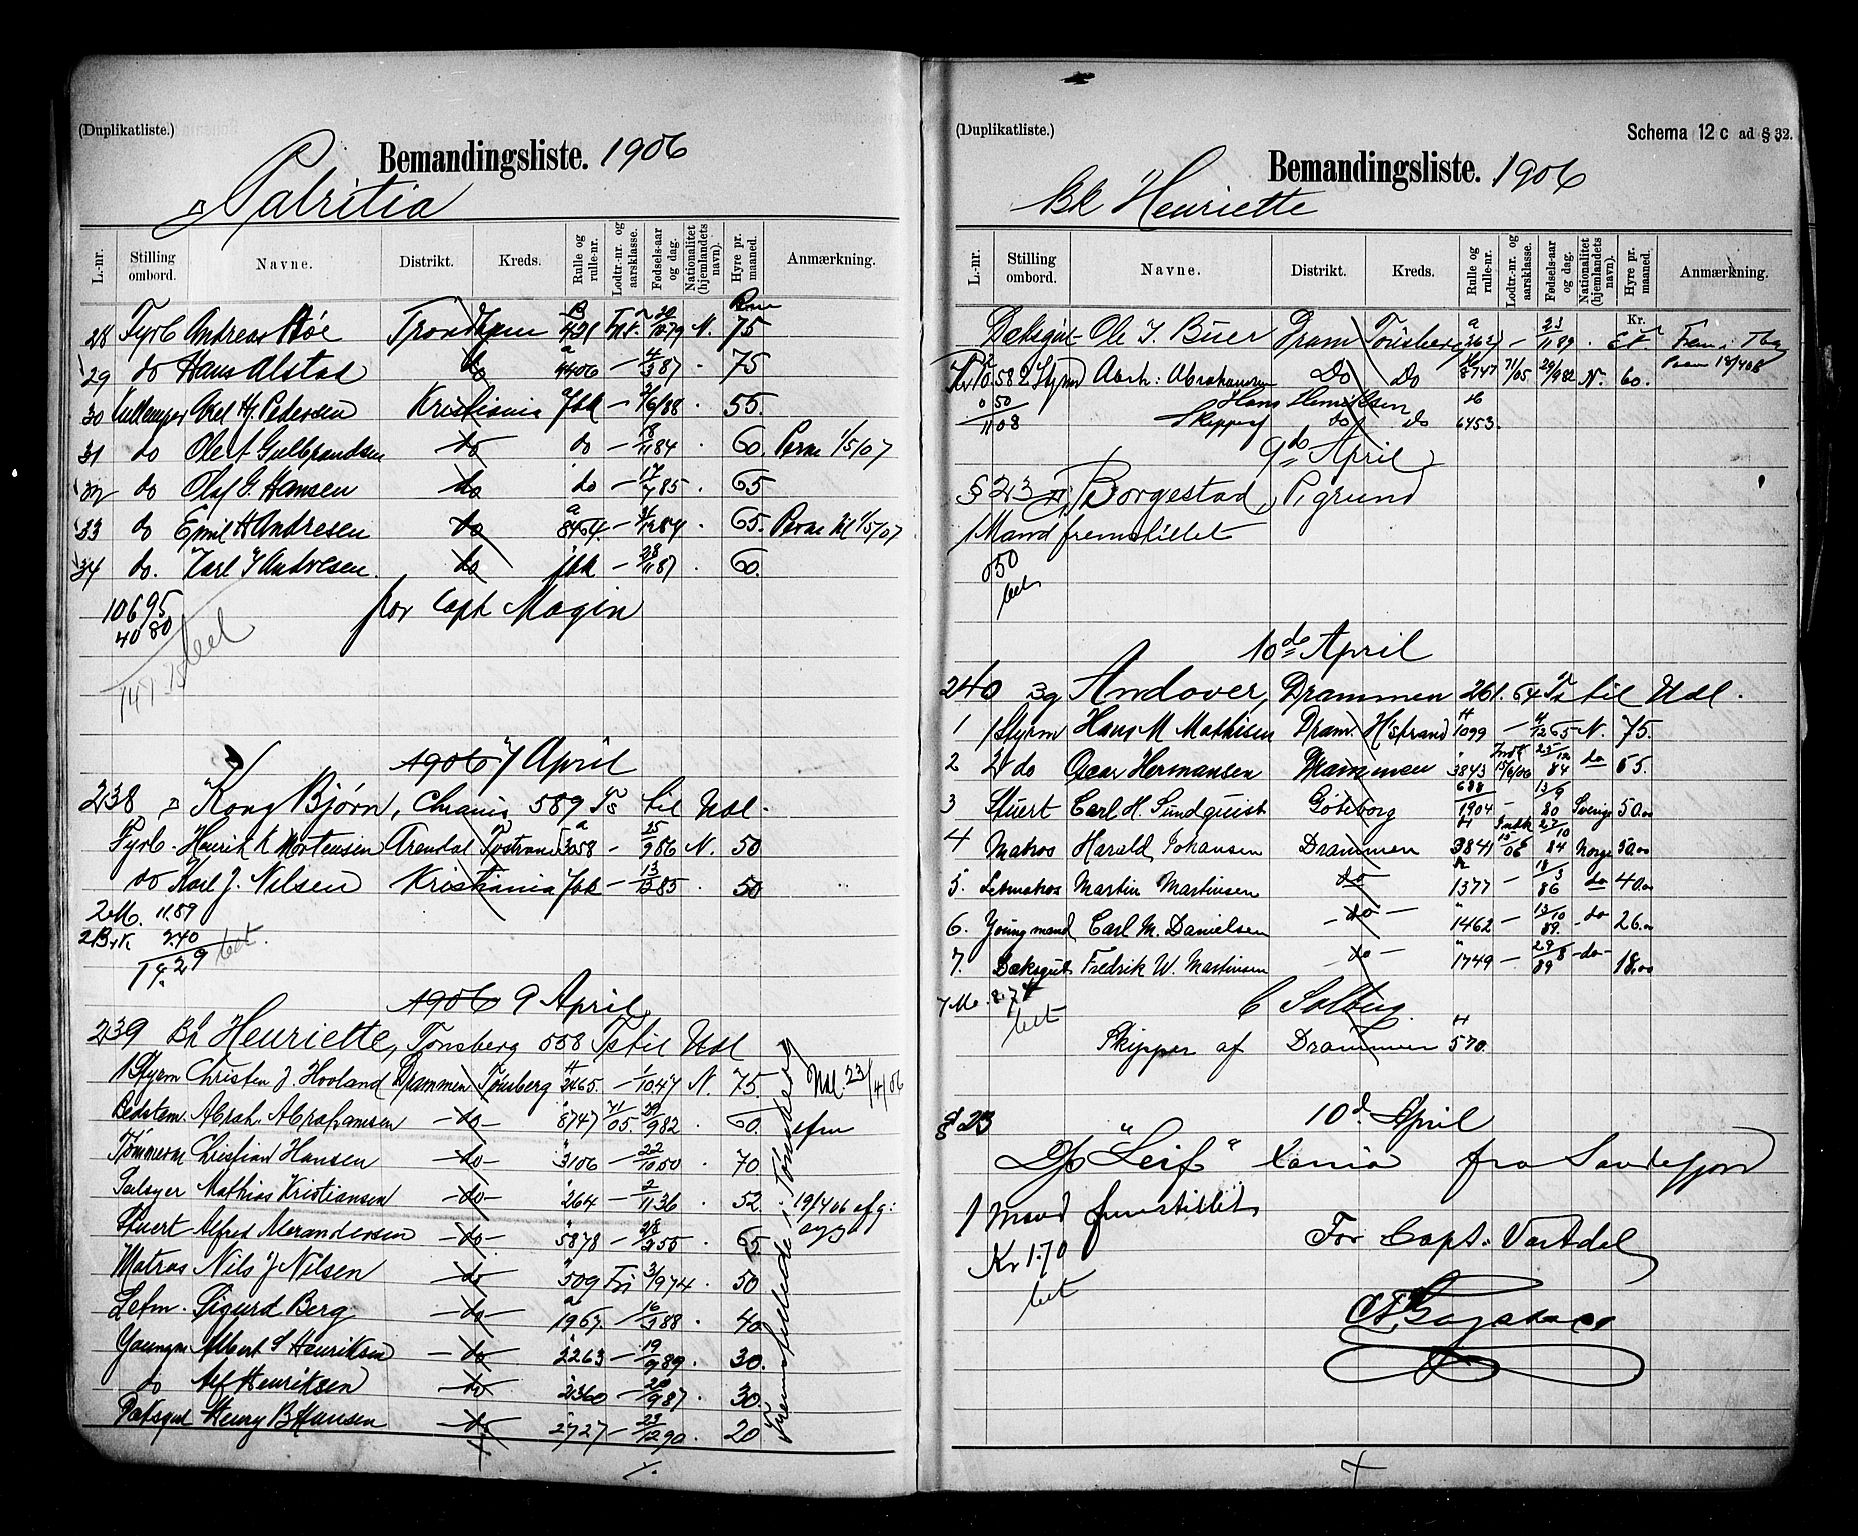 (Duplikatliste.)
Bemandingsliste. 1906
Patritia
L.-nr. Stilling ombord. Navne. Distrikt. Kreds. Rulle og rulle-nr. Lodtr-nr. og aarsklasse. Fødsels-aar og dag. Nationalitet (hjemlandets navn). Hyre pr. maaned. Anmærkning.
28 Fyrb Andreas Høe Trondhjem 421 N. 75
29 do Hans Alstad do 4406 – 4/3 87 · 75
30 Kullemper Axel Hj. Pedersen Kristiania fbk – 2/6 88 · 55.
31 do Ole A Gulbrandsen do do – 18/11 84 · 60. Perm 1/5/07
32 do Olaf G. Hansen do do – 17/7 85 · 65
33 do Emil H Andresen do 8464 – 31/12 84 · 65. Perm til 1/5/07
34 do. Karl J Andresen. do fbk – 28/11 87 · 60.
106 95 for Capt Magin
40 80
bet
1906 7 April
238 D Kong Bjørn, Chrania 589 Ts til Udl.
Fyrb. Henrik K Mortensen Arendal 3058 – 25/9 86 N. 50
do Karl J. Nilsen Kristiania fbk – 13/12 85 · 50
2 M. 11.89
2 Brk 2.40 bet.
14.29
1906 9 April
239 Bk Henriette, Tønsberg 558 Ts til Udl
1 Styrm Christen J Hovland Drammen Tønsberg 2465. – 1/10 47 N. 75. Udl. 23/4/06
Bedstem. Abrah. Abrahamsen – do – 8747 71/05 29/9 82 · 60. afm
Tømmerm Christian Hansen – do – 3106 – 22/10 50 · 70
Salsyer Mathias Kristiansen – do – 264 – 2/11 36 · 52 19/4 06 afg:
Stuert Alfred Merandersen – do – 5878 – 28/2 55 · 65 syg
Matros Nils J Nilsen – do – 509 Fri 3/9 74 · 50
Letm. Sigurd Berg – do – 1967. – 16/3 88 · 40
Youngm Albert S Henriksen – do – 2263 – 19/9 89 · 30.
do Alf Henriksen – do – 2360 – 20/9 87 · 30
Dæksgut Henry B Hansen – do – 2727 – 23/12 90 · 20
Fremstillede i Tønsberg
(Duplikatliste.) Schema 12 c ad § 32.
Bemandingsliste. 1906
Bk Henriette
L.-nr. Stilling ombord. Navne. Distrikt. Kreds. Rulle og rulle-nr. Lodtr-nr. og aarsklasse. Fødsels-aar og dag. Nationalitet (hjemlandets navn). Hyre pr. maaned. Anmærkning.
Kr.
Dæksgut Ole J. Buer Dram Tønsberg 2621 – 23/11 89 · Frem i Tbg
Kr 10.58 2 Styrmd Abrh: Abrahamsen Do Do 8747 71/05 29/9 82 N. 60.
0 50 Hans Henriksen
11 08 Skipper do do 6453.
9de April
§ 23 Borgestad, P.grund
1 Mand fremstillet
0 50
bet
10de April
240 Sg Andover, Drammen 261.64 Ts til Udl.
1 1 Styrm Hans M Mathisen Dram. H'strand 1099 – 4/12 65 N. 75.
2 2 do Oscar Hermansen Drammen 3843 Indk 15/6/06 23/12 84 do 65.
3 Stuert Carl H. Sundquist Gøteborg 688/1904 – 13/9 80 Sverige 50.00
4 Matros Harald Johansen Drammen 3841 Indk 15/06 27/10 84 Norge 50.00
5. Letmatros Martin Martinsen do 1377 – 18/3 86 do 40.00
6. Youngmand Carl M. Danielsen – do – 1462 – 13/10 89. – do 26.00
7. Dæksgut Fredrik W. Martinsen – do – 1749 – 29/8 89 – do – 18.00
7 M. 8.74 C Solberg.
bet
Skipper af Drammen 570.
§ 23 10d April
"Leif" Xania fra Sandefjord
1 Mand fremstillet
For Capt. Vartdal
Kr 1.70
bet